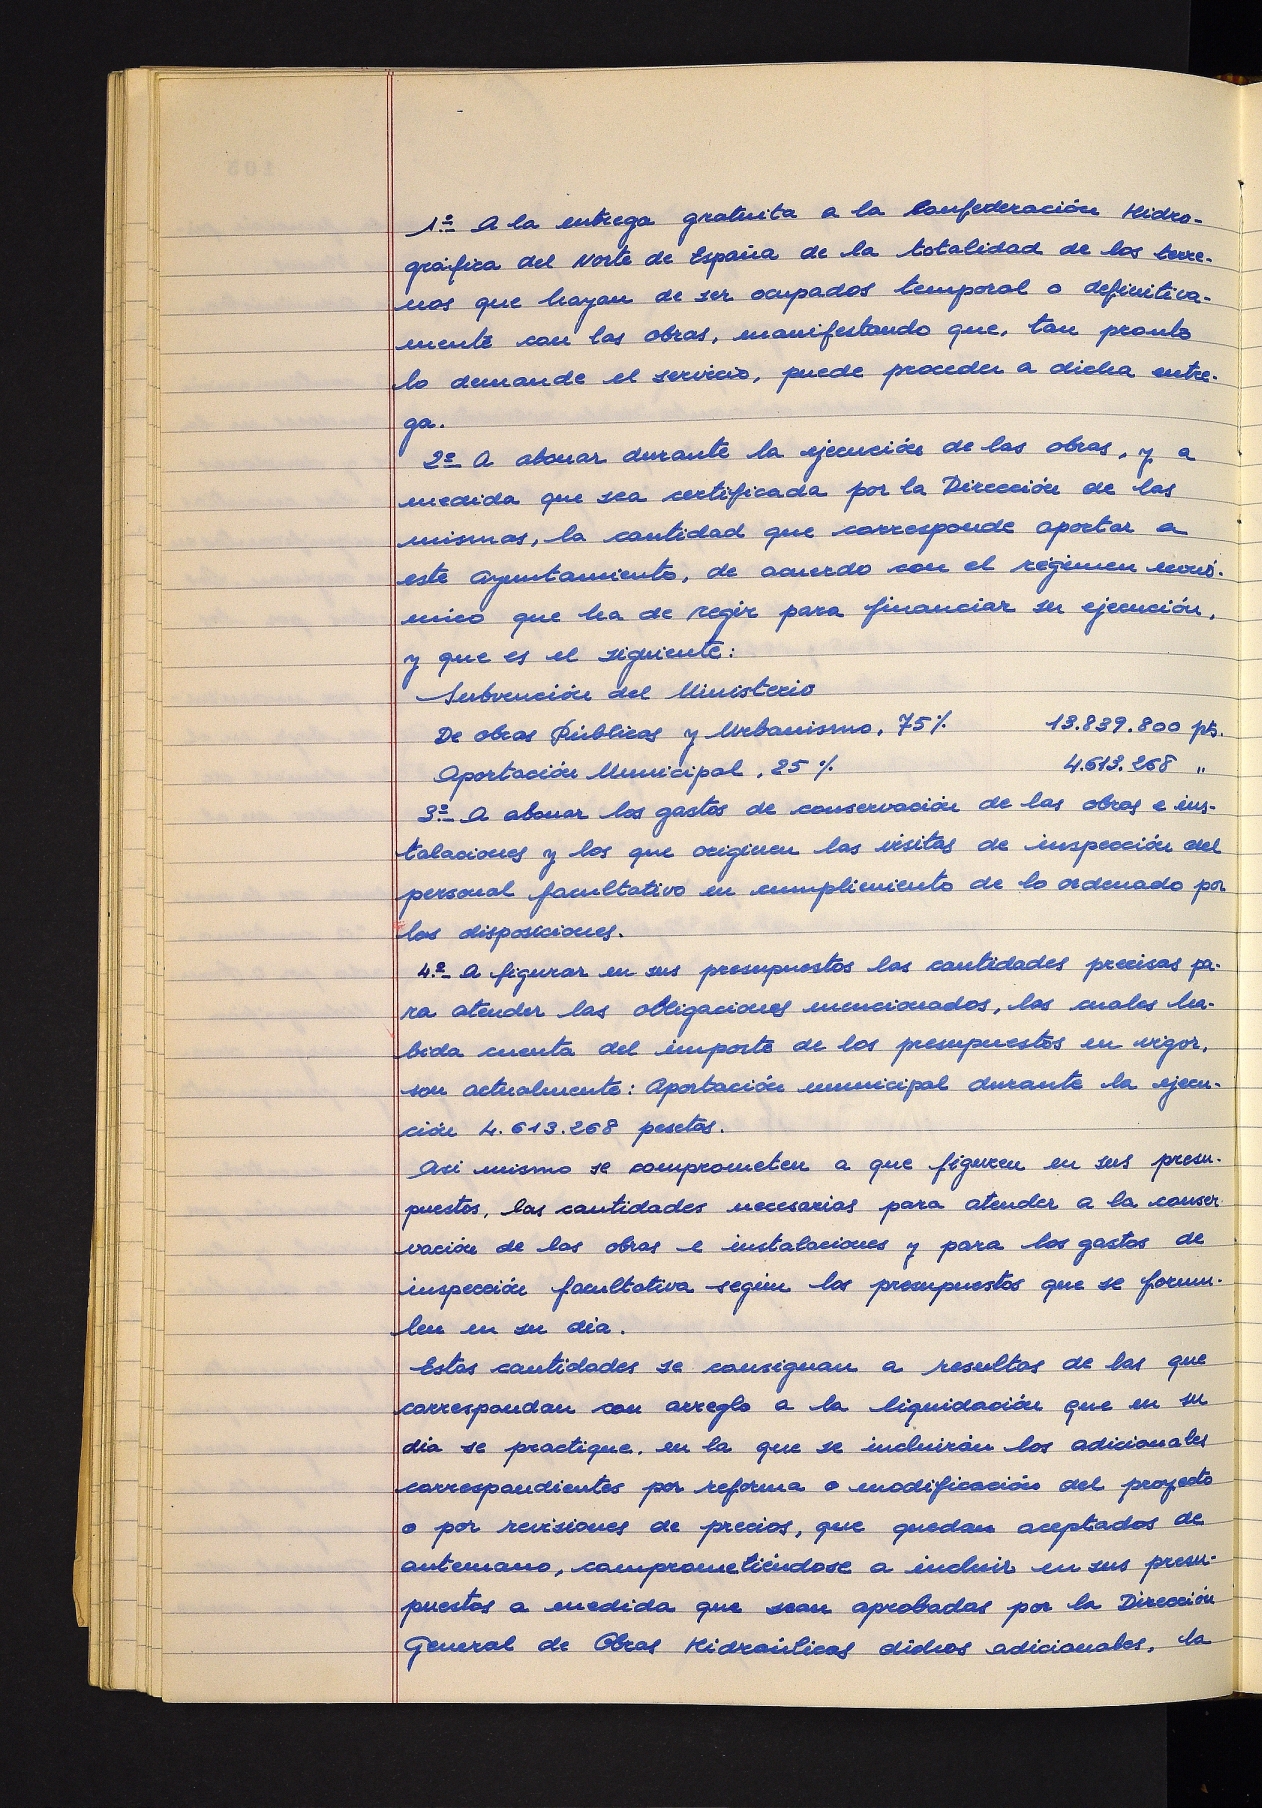 1º- A la entrega gratuita a la Confederación Hidro-
gráfica del Norte de España de la totalidad de los terre-
nos que hayan de ser ocupados temporal o definitiva-
mente con las obras, manifestando que, tan pronto
lo demande el servicio, puede proceder a dicha entre-
ga.
2º- A abonar durante la ejecución de las obras, y a
medida que sea certificada por la Dirección de las
mismas, la cantidad que corresponde aportar a
este Ayuntamiento, de acuerdo con el régimen econó-
mico que ha de regir para financiar su ejecución,
y que es el siguiente:
Subvención del Ministerio
De obras Públicas y Urbanismo, 75% 13.839.800 pts.
Aportación Municipal, 25% 4.613.268 "
3º- A abonar los gastos de conservación de las obras e ins-
talaciones y los que originen las visitas de inspección del
personal facultativo en cumplimiento de lo ordenado por
las disposiciones.
4º- A figurar en sus presupuestos las cantidades precisas pa-
ra atender las obligaciones mencionados, las cuales ha-
bida cuenta del importe de los presupuestos en vigor,
son actualmente: Aportación municipal durante la ejecu-
ción 4.613.268 pesetas.
Asi mismo se comprometen a que figuren en sus presu-
puestos, las cantidades necesarias para atender a la conser
vación de las obras e instalaciones y para los gastos de
inspección facultativa según los presupuestos que se formu-
len en su dia.
Estas cantidades se consignan a resultas de las que
correspondan con arreglo a la liquidación que en su
dia se practique, en la que se incluirán los adicionales
correspondientes por reforma o modificación del proyecto
o por revisiones de precios, que quedan aceptados de
antemano, comprometiéndose a incluir en sus presu-
puestos a medida que sean aprobadas por la Dirección
General de Obras Hidraúlicas dichos adicionales, la